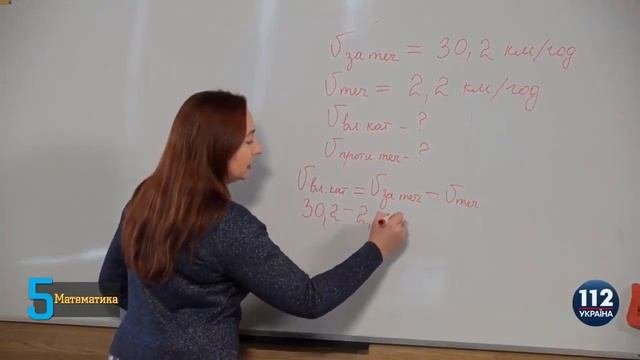 Vза теч = 30,2 км/год
Vтеч = 2,2 км/год
Vвл. кат - ?
Vпроти теч - ?
Vвл. кат = Vза теч - Vтеч
30,2 - 2,
5 Математика
112
УКРАЇНА